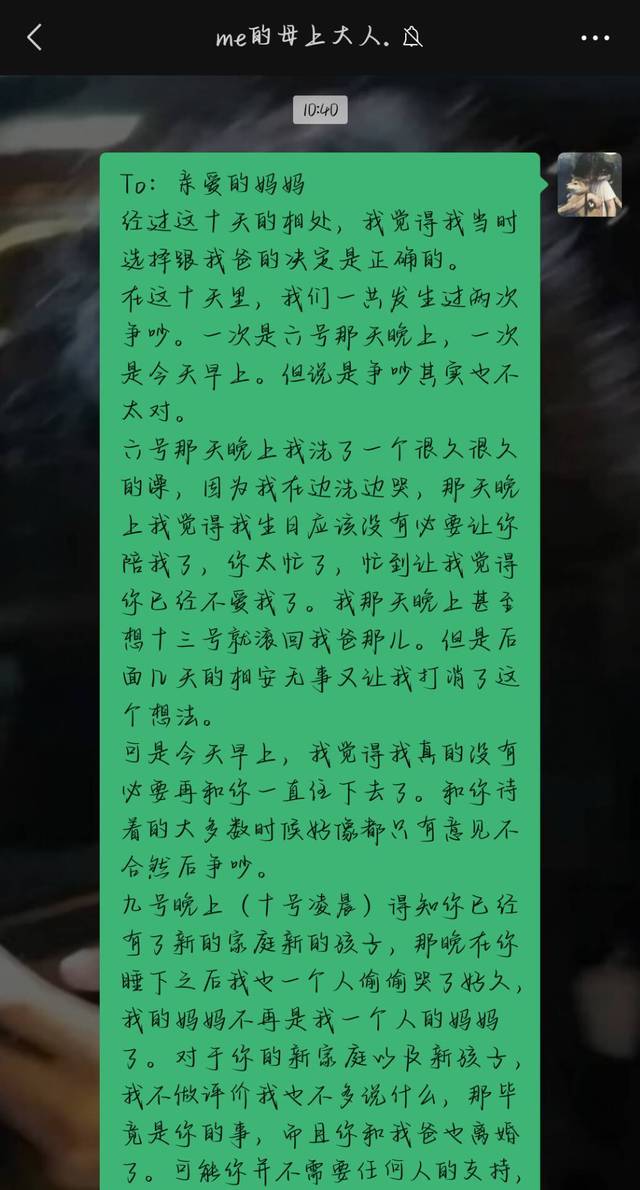 me的母上大人.
10:40
To：亲爱的妈妈
经过这十天的相处，我觉得我当时
选择跟我爸的决定是正确的。
在这十天里，我们一共发生过两次
争吵。一次是六号那天晚上，一次
是今天早上。但说是争吵其实也不
太对。
六号那天晚上我洗了一个很久很久
的澡，因为我在边洗边哭，那天晚
上我觉得我生日应该没有必要让你
陪我了，你太忙了，忙到让我觉得
你已经不爱我了。我那天晚上甚至
想十三号就滚回我爸那儿。但是后
面几天的相安无事又让我打消了这
个想法。
可是今天早上，我觉得我真的没有
必要再和你一直住下去了。和你待
着的大多数时候好像都只有意见不
合然后争吵。
九号晚上（十号凌晨）得知你已经
有了新的家庭新的孩子，那晚在你
睡下之后我也一个人偷偷哭了好久，
我的妈妈不再是我一个人的妈妈
了。对于你的新家庭以及新孩子，
我不做评价我也不多说什么，那毕
竟是你的事，而且你和我爸也离婚
了。可能你并不需要任何人的支持，